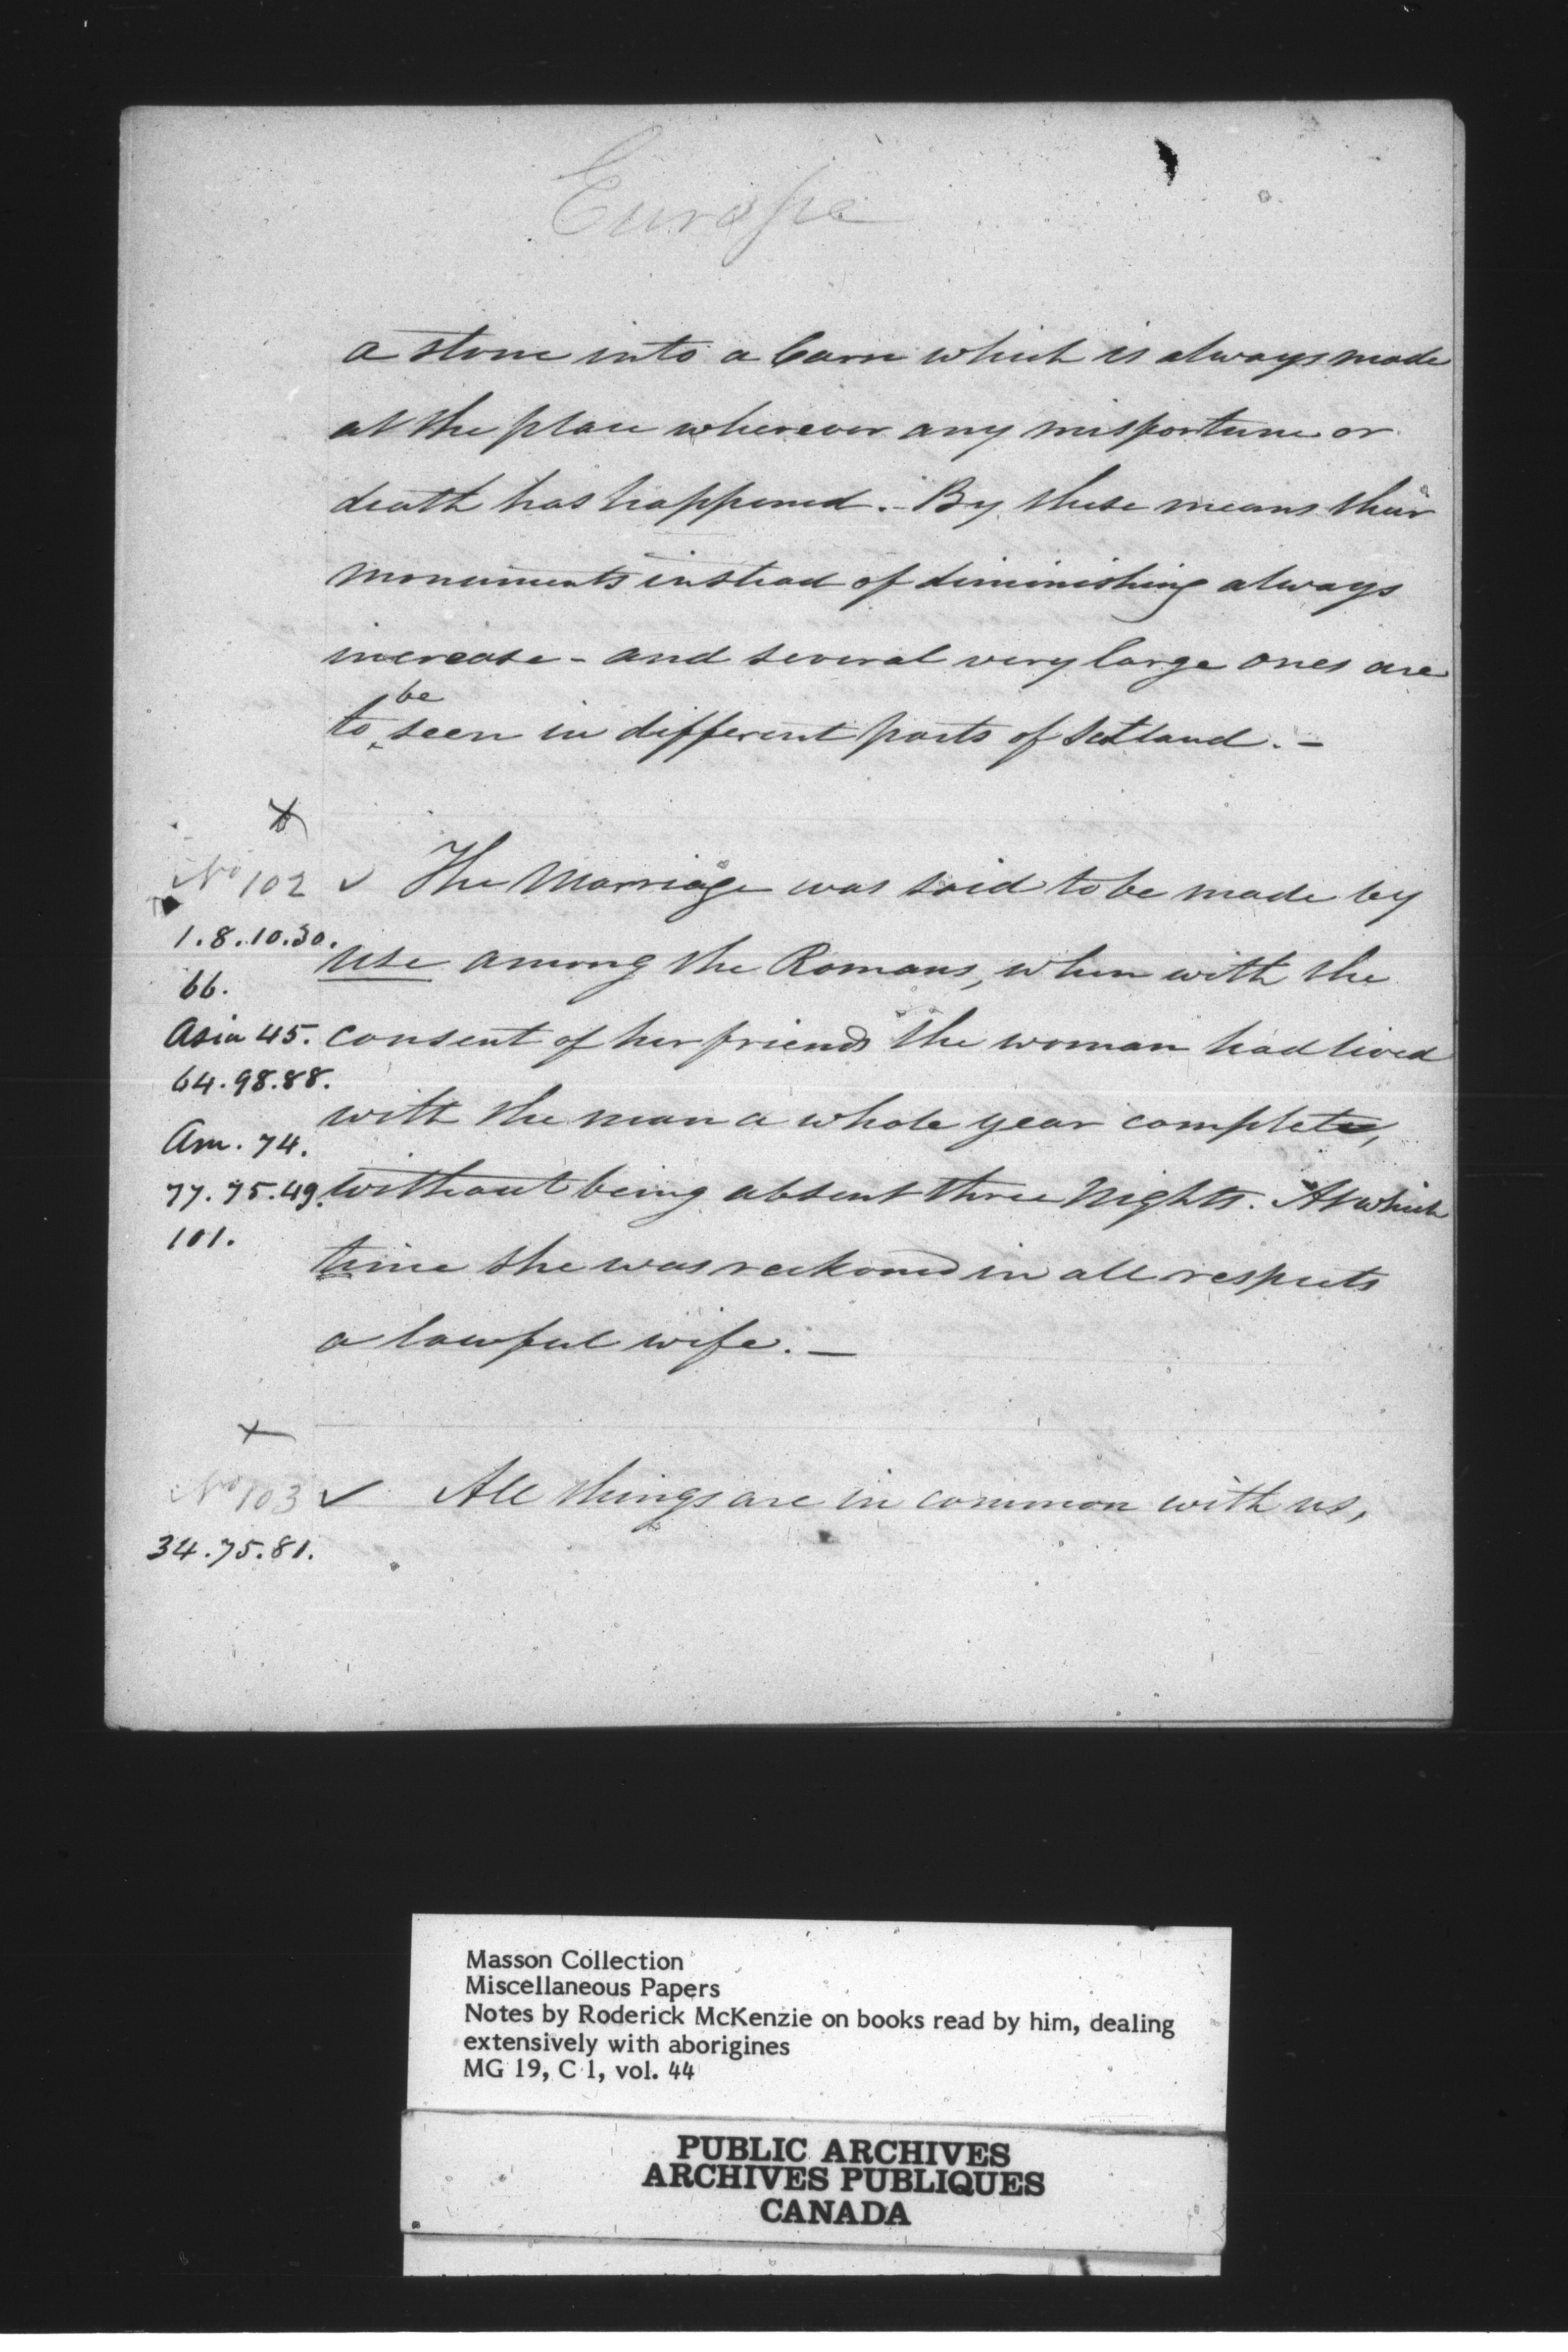 Europe
a stone into a Carn which is always made
at the place wherever any misfortune or
death has happened. - By these means their
monuments instead of diminishing always
increase - and several very large ones are
be
to ‸ seen in different parts of Scotland. -
No 102 ✓ The Marriage was said to be made by
1.8.10.30.
use among the Romans, when with the
66.
Asia 45. consent of her friends the woman had lived
64.98.88.
with the man a whole year complete,
Am. 74.
77.75.49. without being absent three Nights. At which
101.
time she was reckoned in all respects
a lawful wife. -
No 103 ✓ All things are in common with us,
34.75.81.
Masson Collection
Miscellaneous Papers
Notes by Roderick McKenzie on books read by him, dealing
extensively with aborigines
MG 19, C 1, vol. 44
PUBLIC ARCHIVES
ARCHIVES PUBLIQUES
CANADA